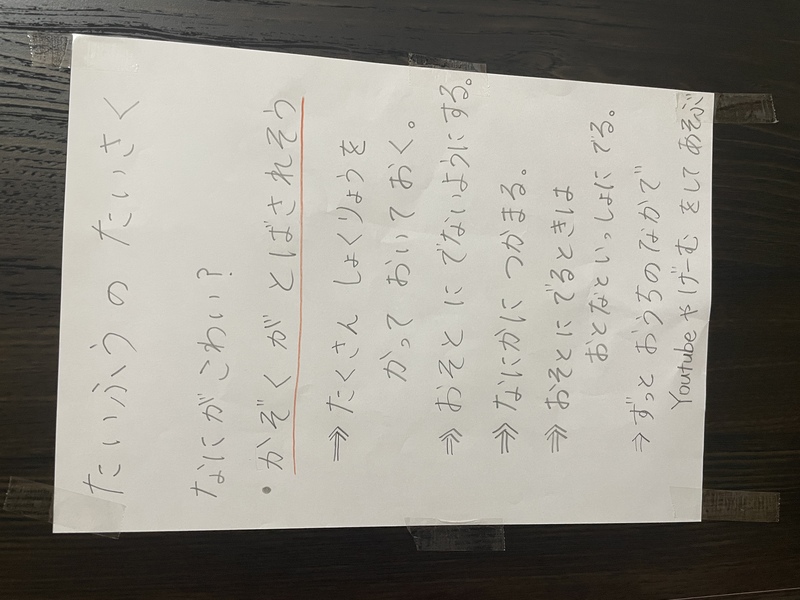 たいふうの たいさく
なにがこわい?
・かぞくが とばされそう
⇒たくさん しょくりょうを
かって おいて おく。
⇒おそとにでないようにする。
⇒なにかに つかまる。
⇒おそとにでるときは
おとなといっしょにでる。
⇒ずっと おうちのなかで
Youtubeやげーむ をして あそぶ